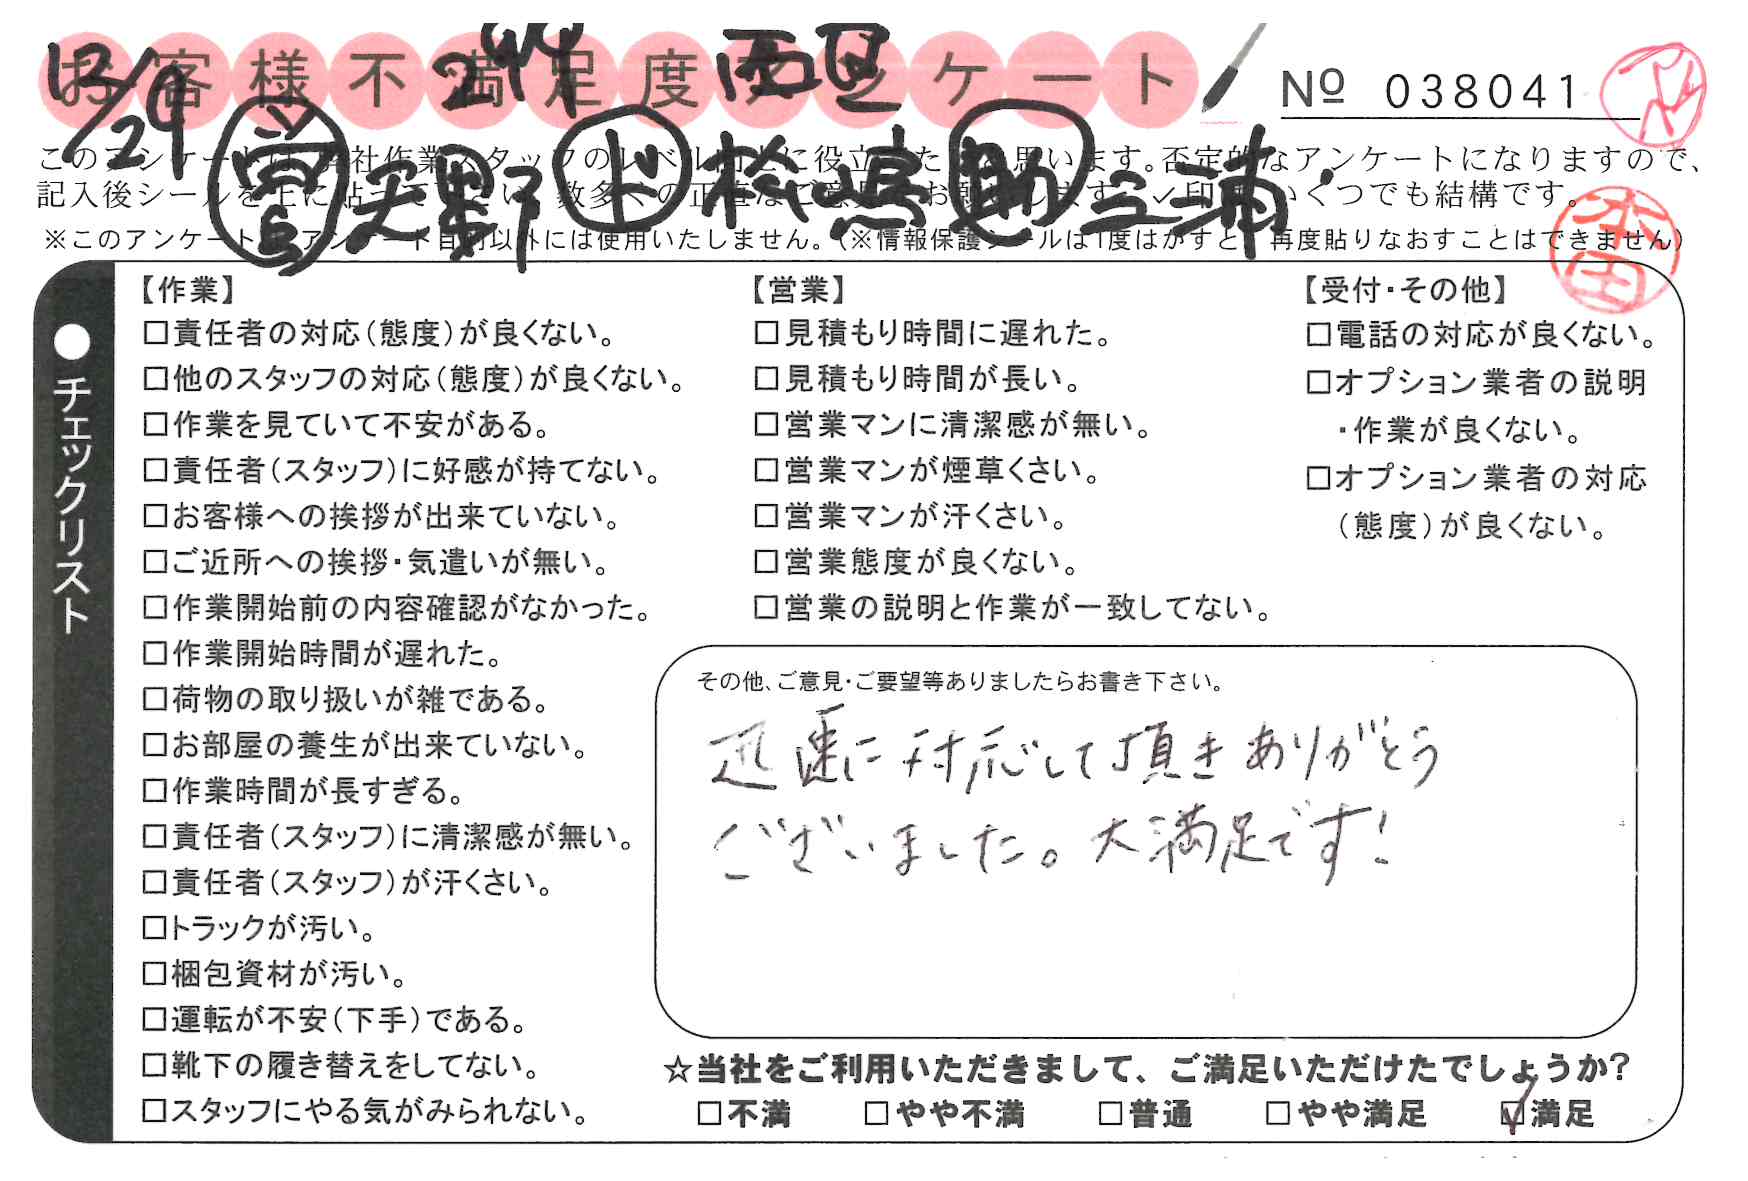 お客様不満足度アンケート
12/29 西区
№ 038041
営 天野 ド 桧髙 助 三浦
このアンケートは、弊社作業スタッフのレベル向上に役立てたいと思います。否定的なアンケートになりますので、
記入後シールを上に貼って下さい。数多くの正直なご意見をお願いします。✓印はいくつでも結構です。
※このアンケートはアンケート目的以外には使用いたしません。(※情報保護シールは1度はがすと、再度貼りなおすことはできません)
本田
●チェックリスト
【作業】
□責任者の対応(態度)が良くない。
□他のスタッフの対応(態度)が良くない。
□作業を見ていて不安がある。
□責任者(スタッフ)に好感が持てない。
□お客様への挨拶が出来ていない。
□ご近所への挨拶・気遣いが無い。
□作業開始前の内容確認がなかった。
□作業開始時間が遅れた。
□荷物の取り扱いが雑である。
□お部屋の養生が出来ていない。
□作業時間が長すぎる。
□責任者(スタッフ)に清潔感が無い。
□責任者(スタッフ)が汗くさい。
□トラックが汚い。
□梱包資材が汚い。
□運転が不安(下手)である。
□靴下の履き替えをしてない。
□スタッフにやる気がみられない。
【営業】
□見積もり時間に遅れた。
□見積もり時間が長い。
□営業マンに清潔感が無い。
□営業マンが煙草くさい。
□営業マンが汗くさい。
□営業態度が良くない。
□営業の説明と作業が一致してない。
【受付・その他】
□電話の対応が良くない。
□オプション業者の説明
・作業が良くない。
□オプション業者の対応
(態度)が良くない。
その他、ご意見・ご要望等ありましたらお書き下さい。
迅速に対応して頂きありがとう
ございました。大満足です!
☆当社をご利用いただきまして、ご満足いただけたでしょうか?
□不満 □やや不満 □普通 □やや満足 ☑満足